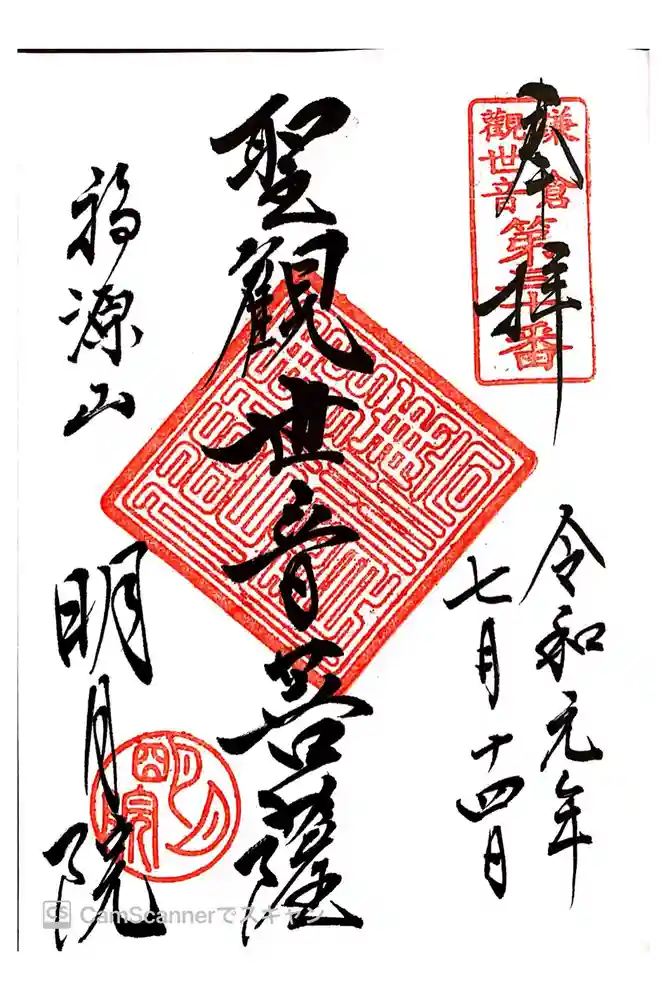 奉拝
鎌倉
觀世音
第三十番
令和元年
七月十四日
聖觀世音菩薩
福源山
明月院
CS CamScannerでスキャン